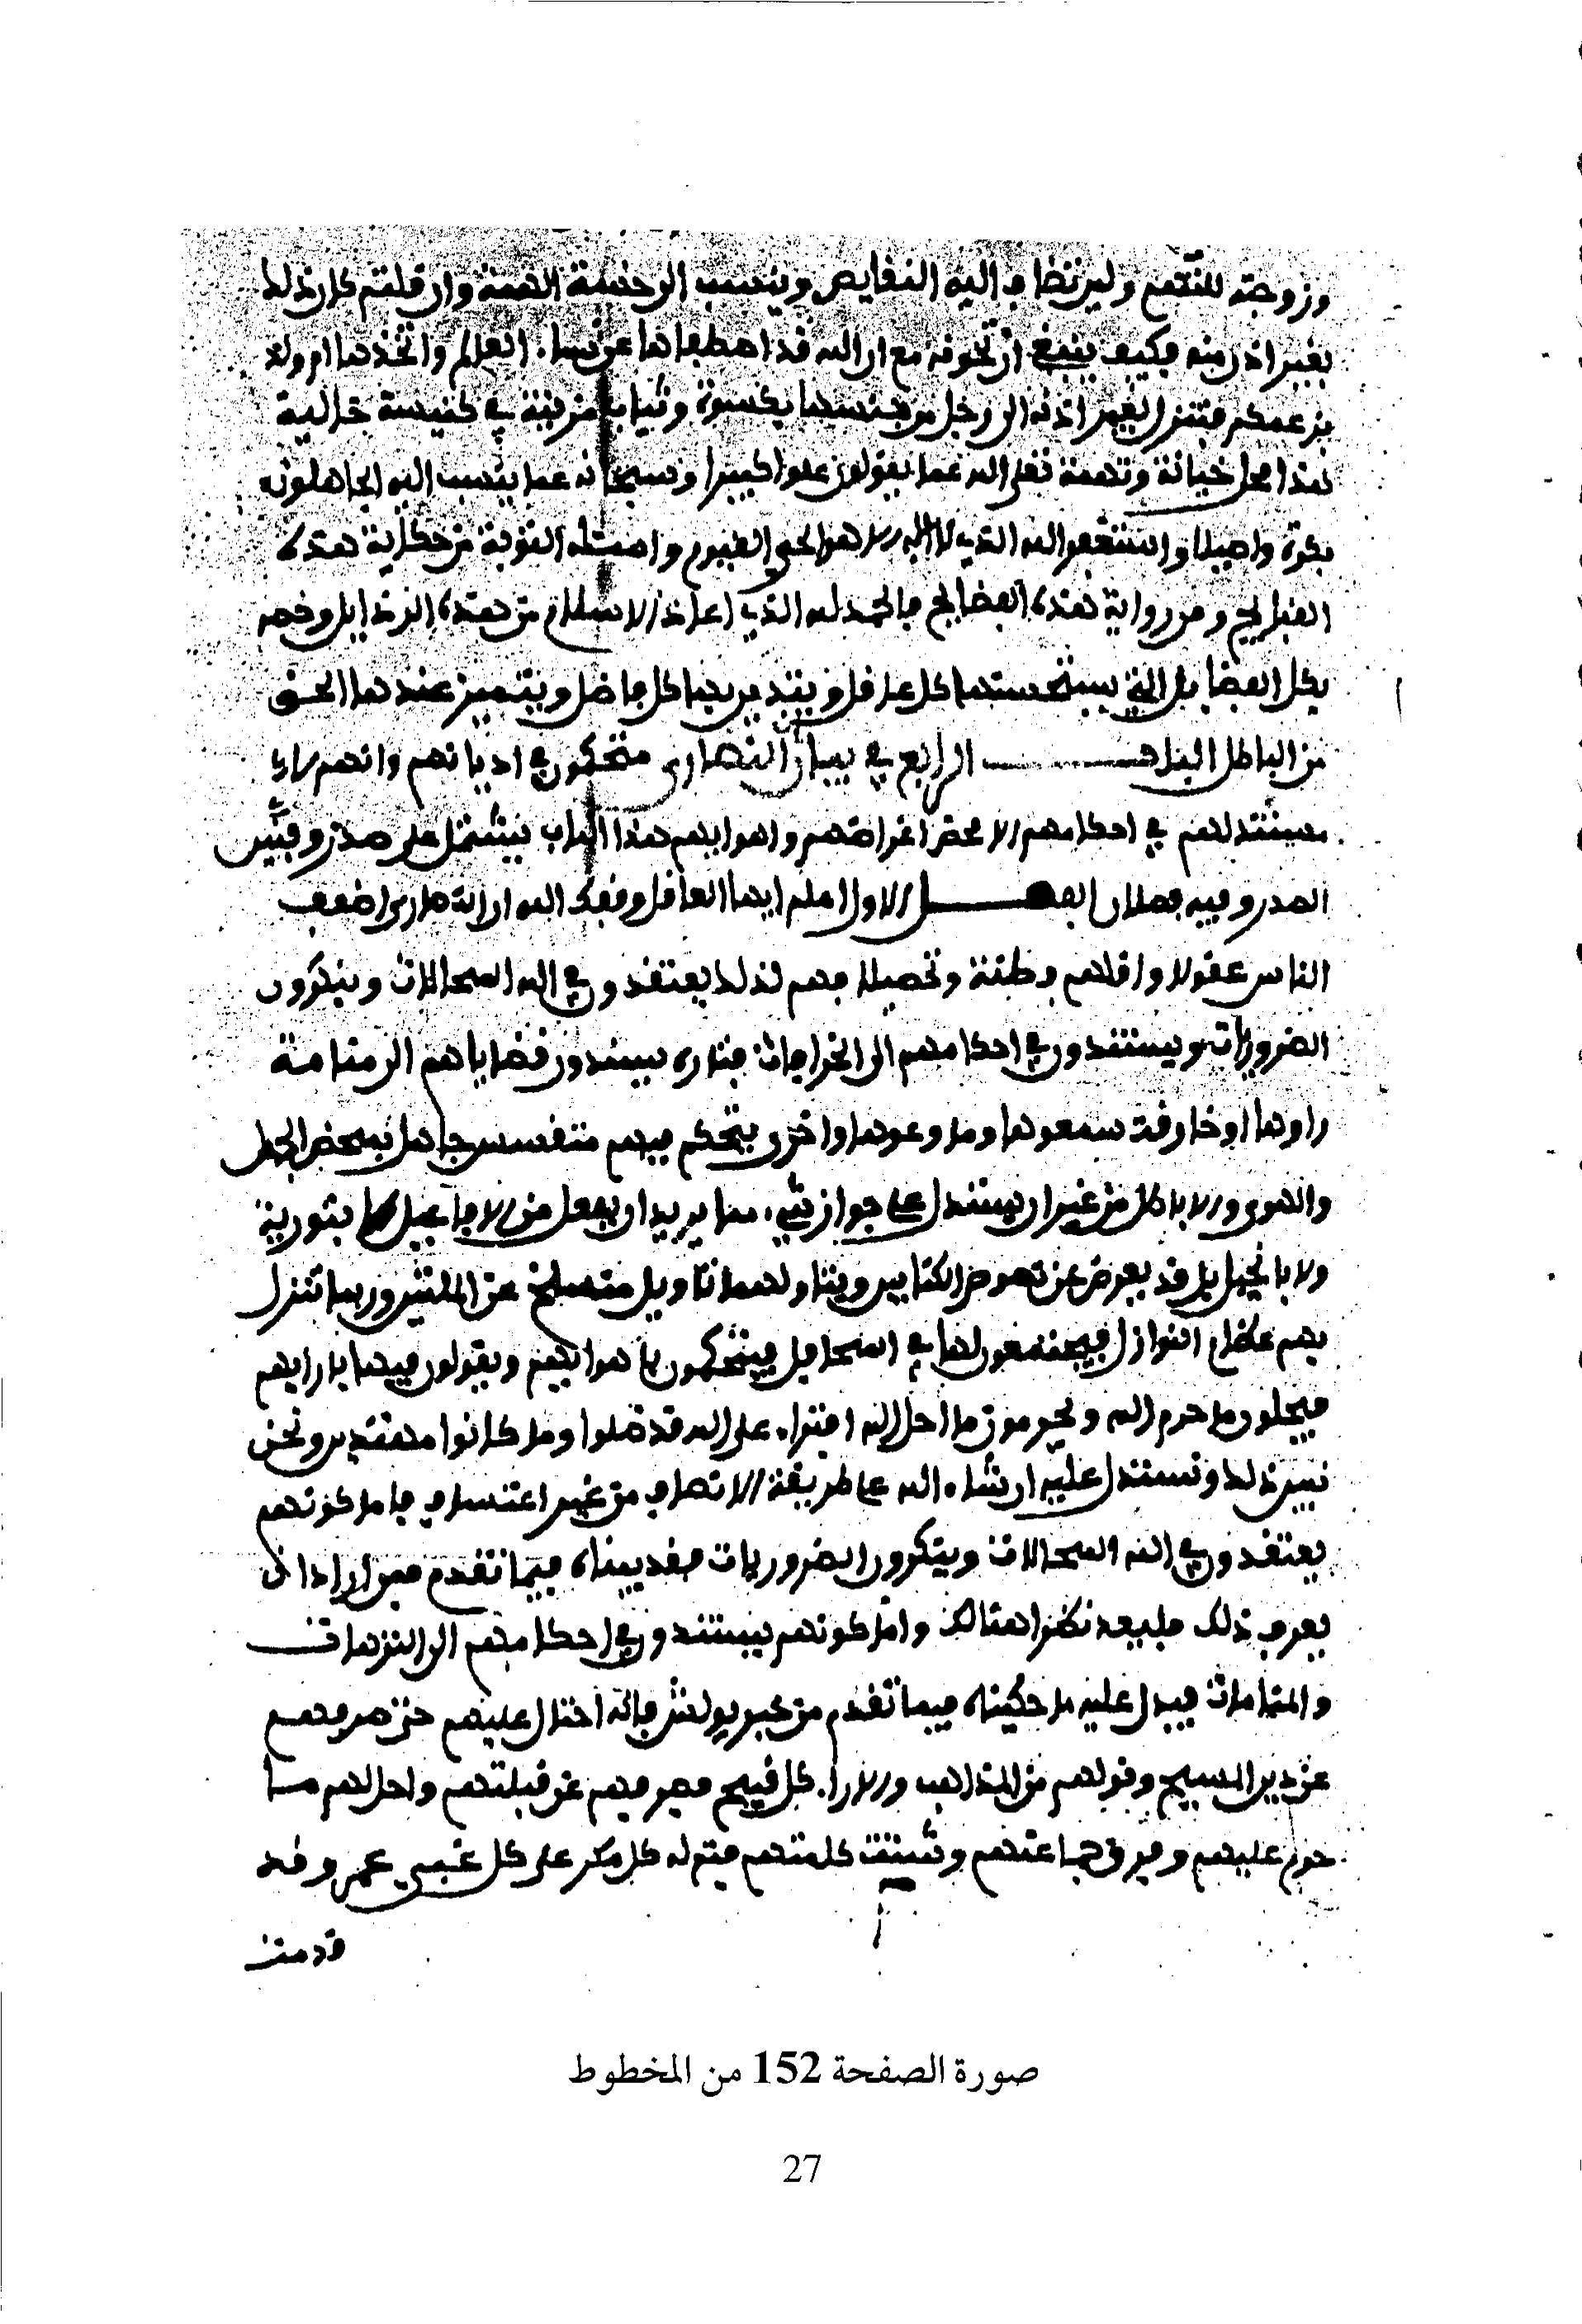 وزوجته للتهم ولين تضاف اليه النقايص وينسب الى خسة الهمة وان قلتم كان ذلك
بغير اذن منه فكيف ينبغي ان تخونه مع ان الله قد اصطفاها عن نساء العالم واتخذها ام ولد
بزعمكم فتنزل بغير اذنه الى رجل من جنسها بكسوة وثياب مزينة في كنيسة خالية
هذا محل خيانة وتهمة تعلى الله عما يقولون علوا كبيرا وسبحانه عما ينسب اليه الجاهلون
بكرة واصيلا واستغفر الله الذي لا اله الا هو الحي القيوم واسئله التوبة من حكاية هذه
القبايح ومن رواية هذه الفضايح فالحمد لله الذي اعاذ الاسلام من هذه الرذايل وخصه
بكل الفضايل التي يستحسنها كل عاقل ويتدين بها كل فاضل ويتميز عندها الحق
من الباطل البـاب الرابع في بيان ان النصارى متحكمون في اديانهم وانهم لا
مستند لهم في احكامهم الا محض اغراضهم واهوايهم هذا الباب يشتمل على صدر وفنين
الصدر وفيه فصلان الفصـل الاول اعلم ايها العاقل وفقك الله ان النصارى اضعف
الناس عقولا واقلهم فطنة وتحصيلا فهم لذلك يعتقدون في الله المحالات وينكرون
الضروريات ويستندون في احكامهم الى الخرافات فتارة يسندون قضاياهم الى منامة
راوها او خارفة سمعوها وما وعوها واخرى يتحكم فيهم متقسس جاهل بمحض الجهل
والهوى والاباطل من غير ان يستدل على جواز شيء مما يريد ان يفعل من الافاعيل لا بتورية
ولا بانجيل بل قد يعرض عن نصوص الكتابين ويتاولهما تاويل منسلخ عن الملتين وربما تنزل
بهم عظام النوازل فيجتمعون لها في المحافل فيتحكمون باهوايهم ويقولون فيها بارايهم
فيحلون ما حرم الله ويحرمون ما احل الله افتراء على الله قد ضلوا وما كانوا مهتدين ونحن
نبين ذلك ونستدل عليه ان شاء الله على طريقة الانصاف من غير اعتساف فاما كونهم
يعتقدون في الله المحالات وينكرون الضروريات فقد بيناه فيما تقدم فمن اراد ان
يعرف ذلك فليعد نظرا هنالك واما كونهم يستندون في احكامهم الى الترهات
والمنامات فيدل عليه ما حكيناه فيما تقدم من خبر بولش فانه احتال عليهم حتى صرفهم
عن دين المسيح وقولهم من المذاهب والاراء كل قبيح فصرفهم عن قبلتهم واحل لهم ما
حرم عليهم وفرق جماعتهم وشتت كلمتهم فتم له كل مكر على كل غبي غمر وقد
قدمت
صورة الصفحة 152 من المخطوط
27